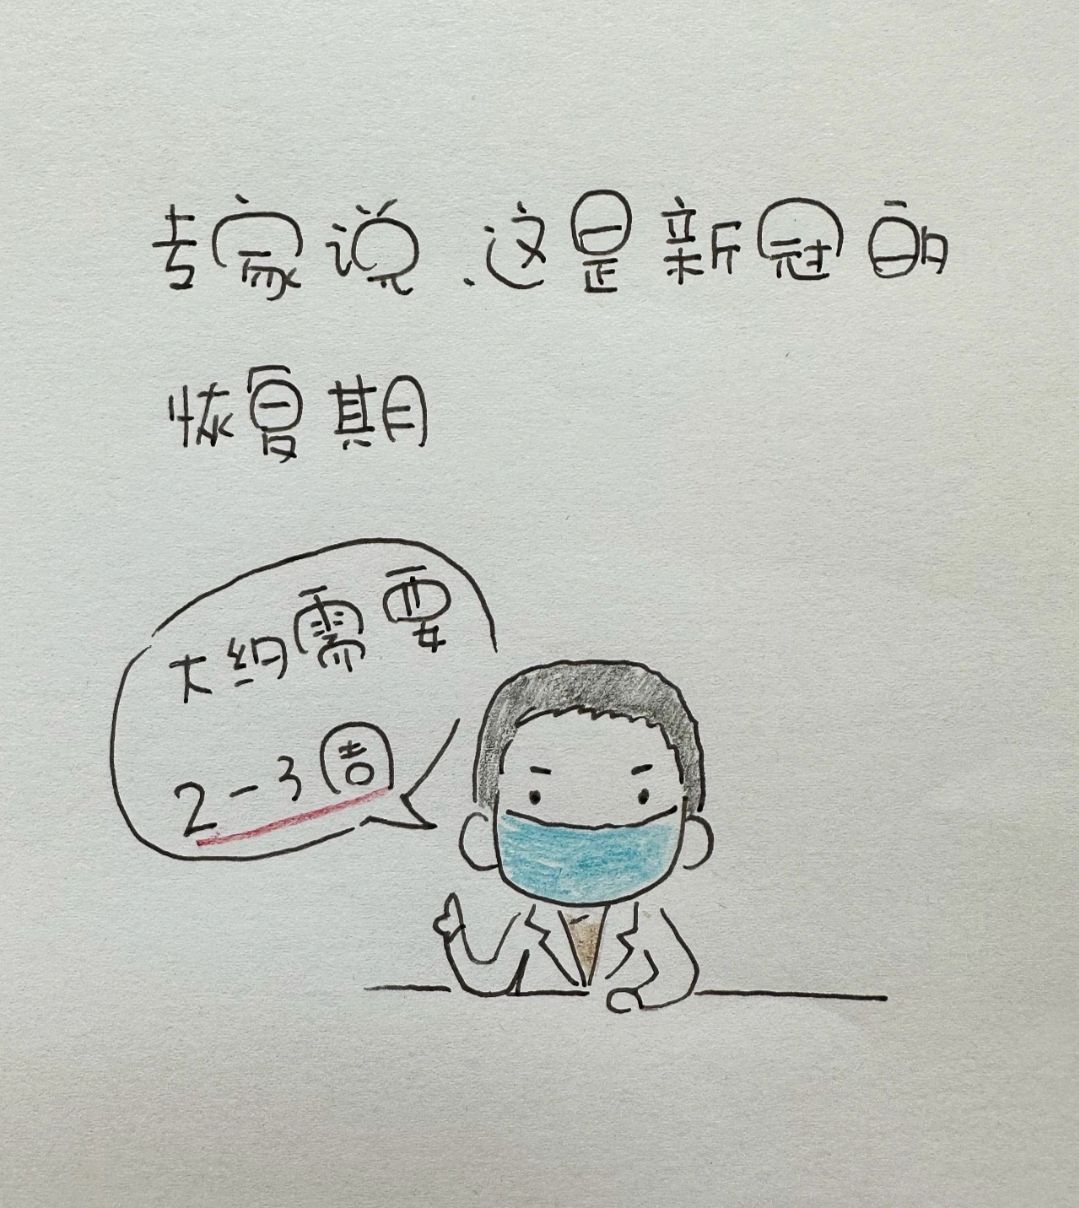 专家说，这是新冠的
恢复期
大约需要
2-3周